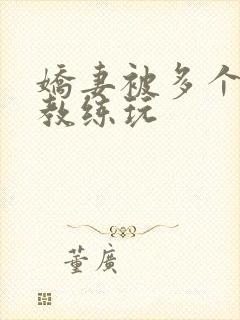 嬌妻被多个
教练玩
董廣